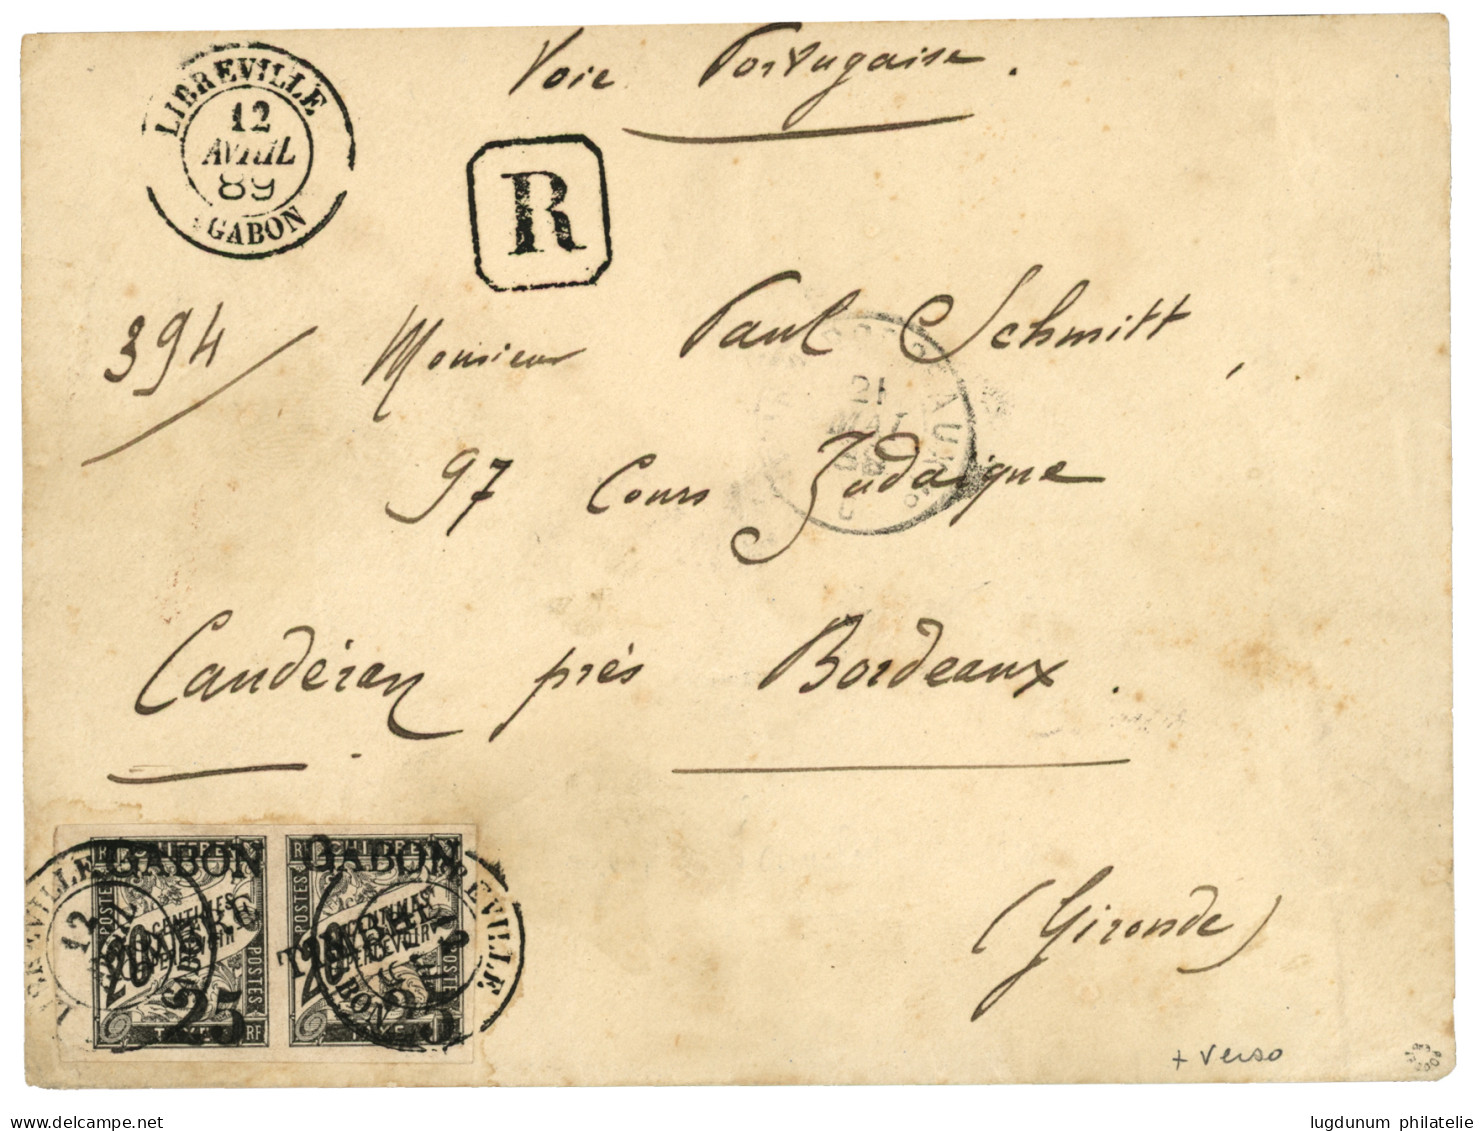 Voie Portugaise.
LIBREVILLE
12
AVRIL
89
GABON
R
394/
Monsieur Paul Schmitt,
21
MAI
97 Cours Judaïque
Caudéran près Bordeaux.
(Gironde)
GABON GABON
TIMBRE TIMBRE
20 20
CENTIMES CENTIMES
PERCEVOIR PERCEVOIR
POSTES POSTES
25 25
TAXE RF TAXE
LIBREVILLE LIBREVILLE
12 12
GABON GABON
+ Verso
lugdunum philatelie